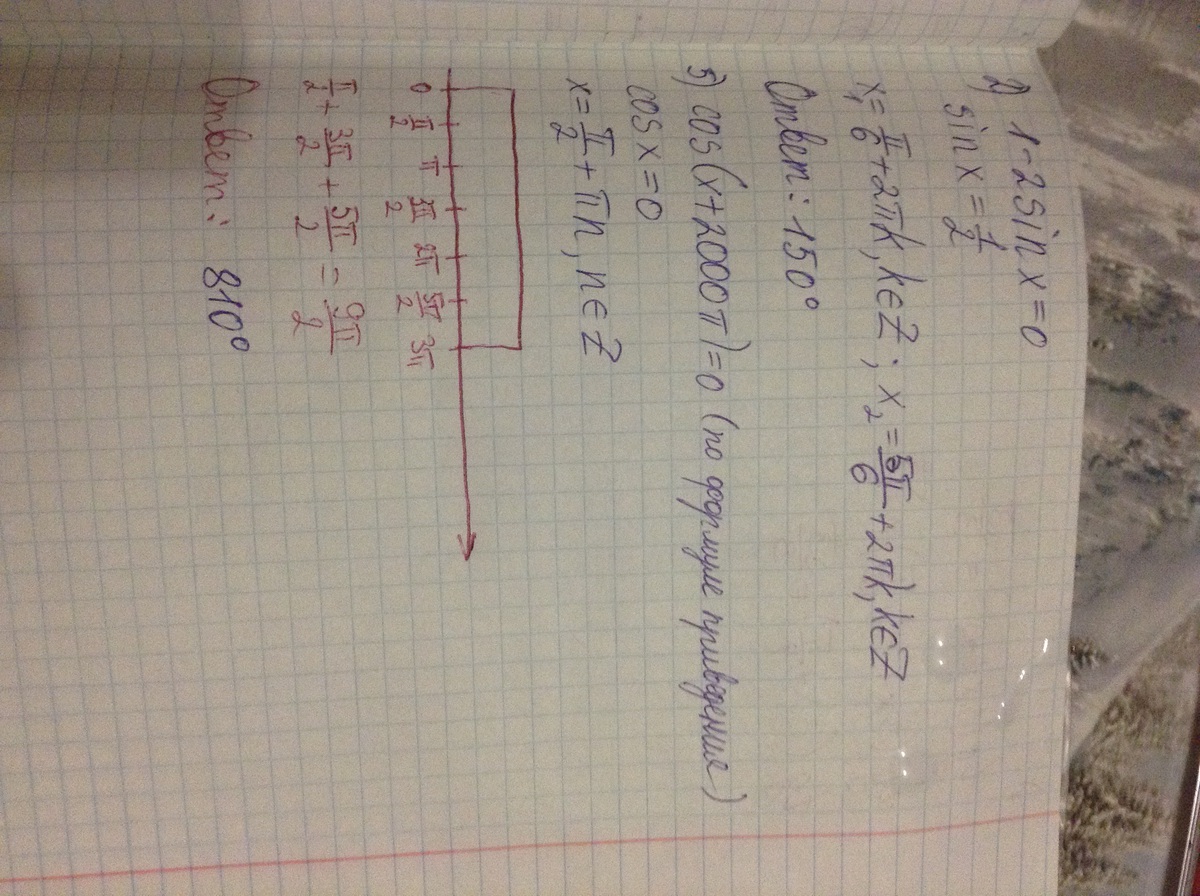 2) 1-2sin x = 0
sin x = 1/2
x₁ = π/6 + 2πk, k∈Z ; x₂ = 5π/6 + 2πk, k∈Z
Ответ: 150°
5) cos(x+2000π)=0 (по формуле приведения)
cos x = 0
x = π/2 + πn, n∈Z
0 π/2 π 3π/2 2π 5π/2 3π
π/2 + 3π/2 + 5π/2 = 9π/2
Ответ: 810°